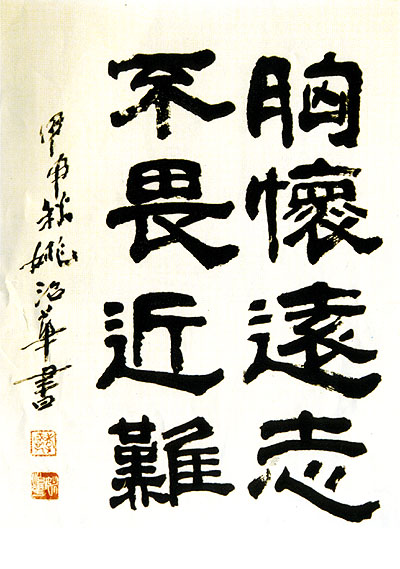 胸懷遠志
不畏近難
甲申秋姚治華書